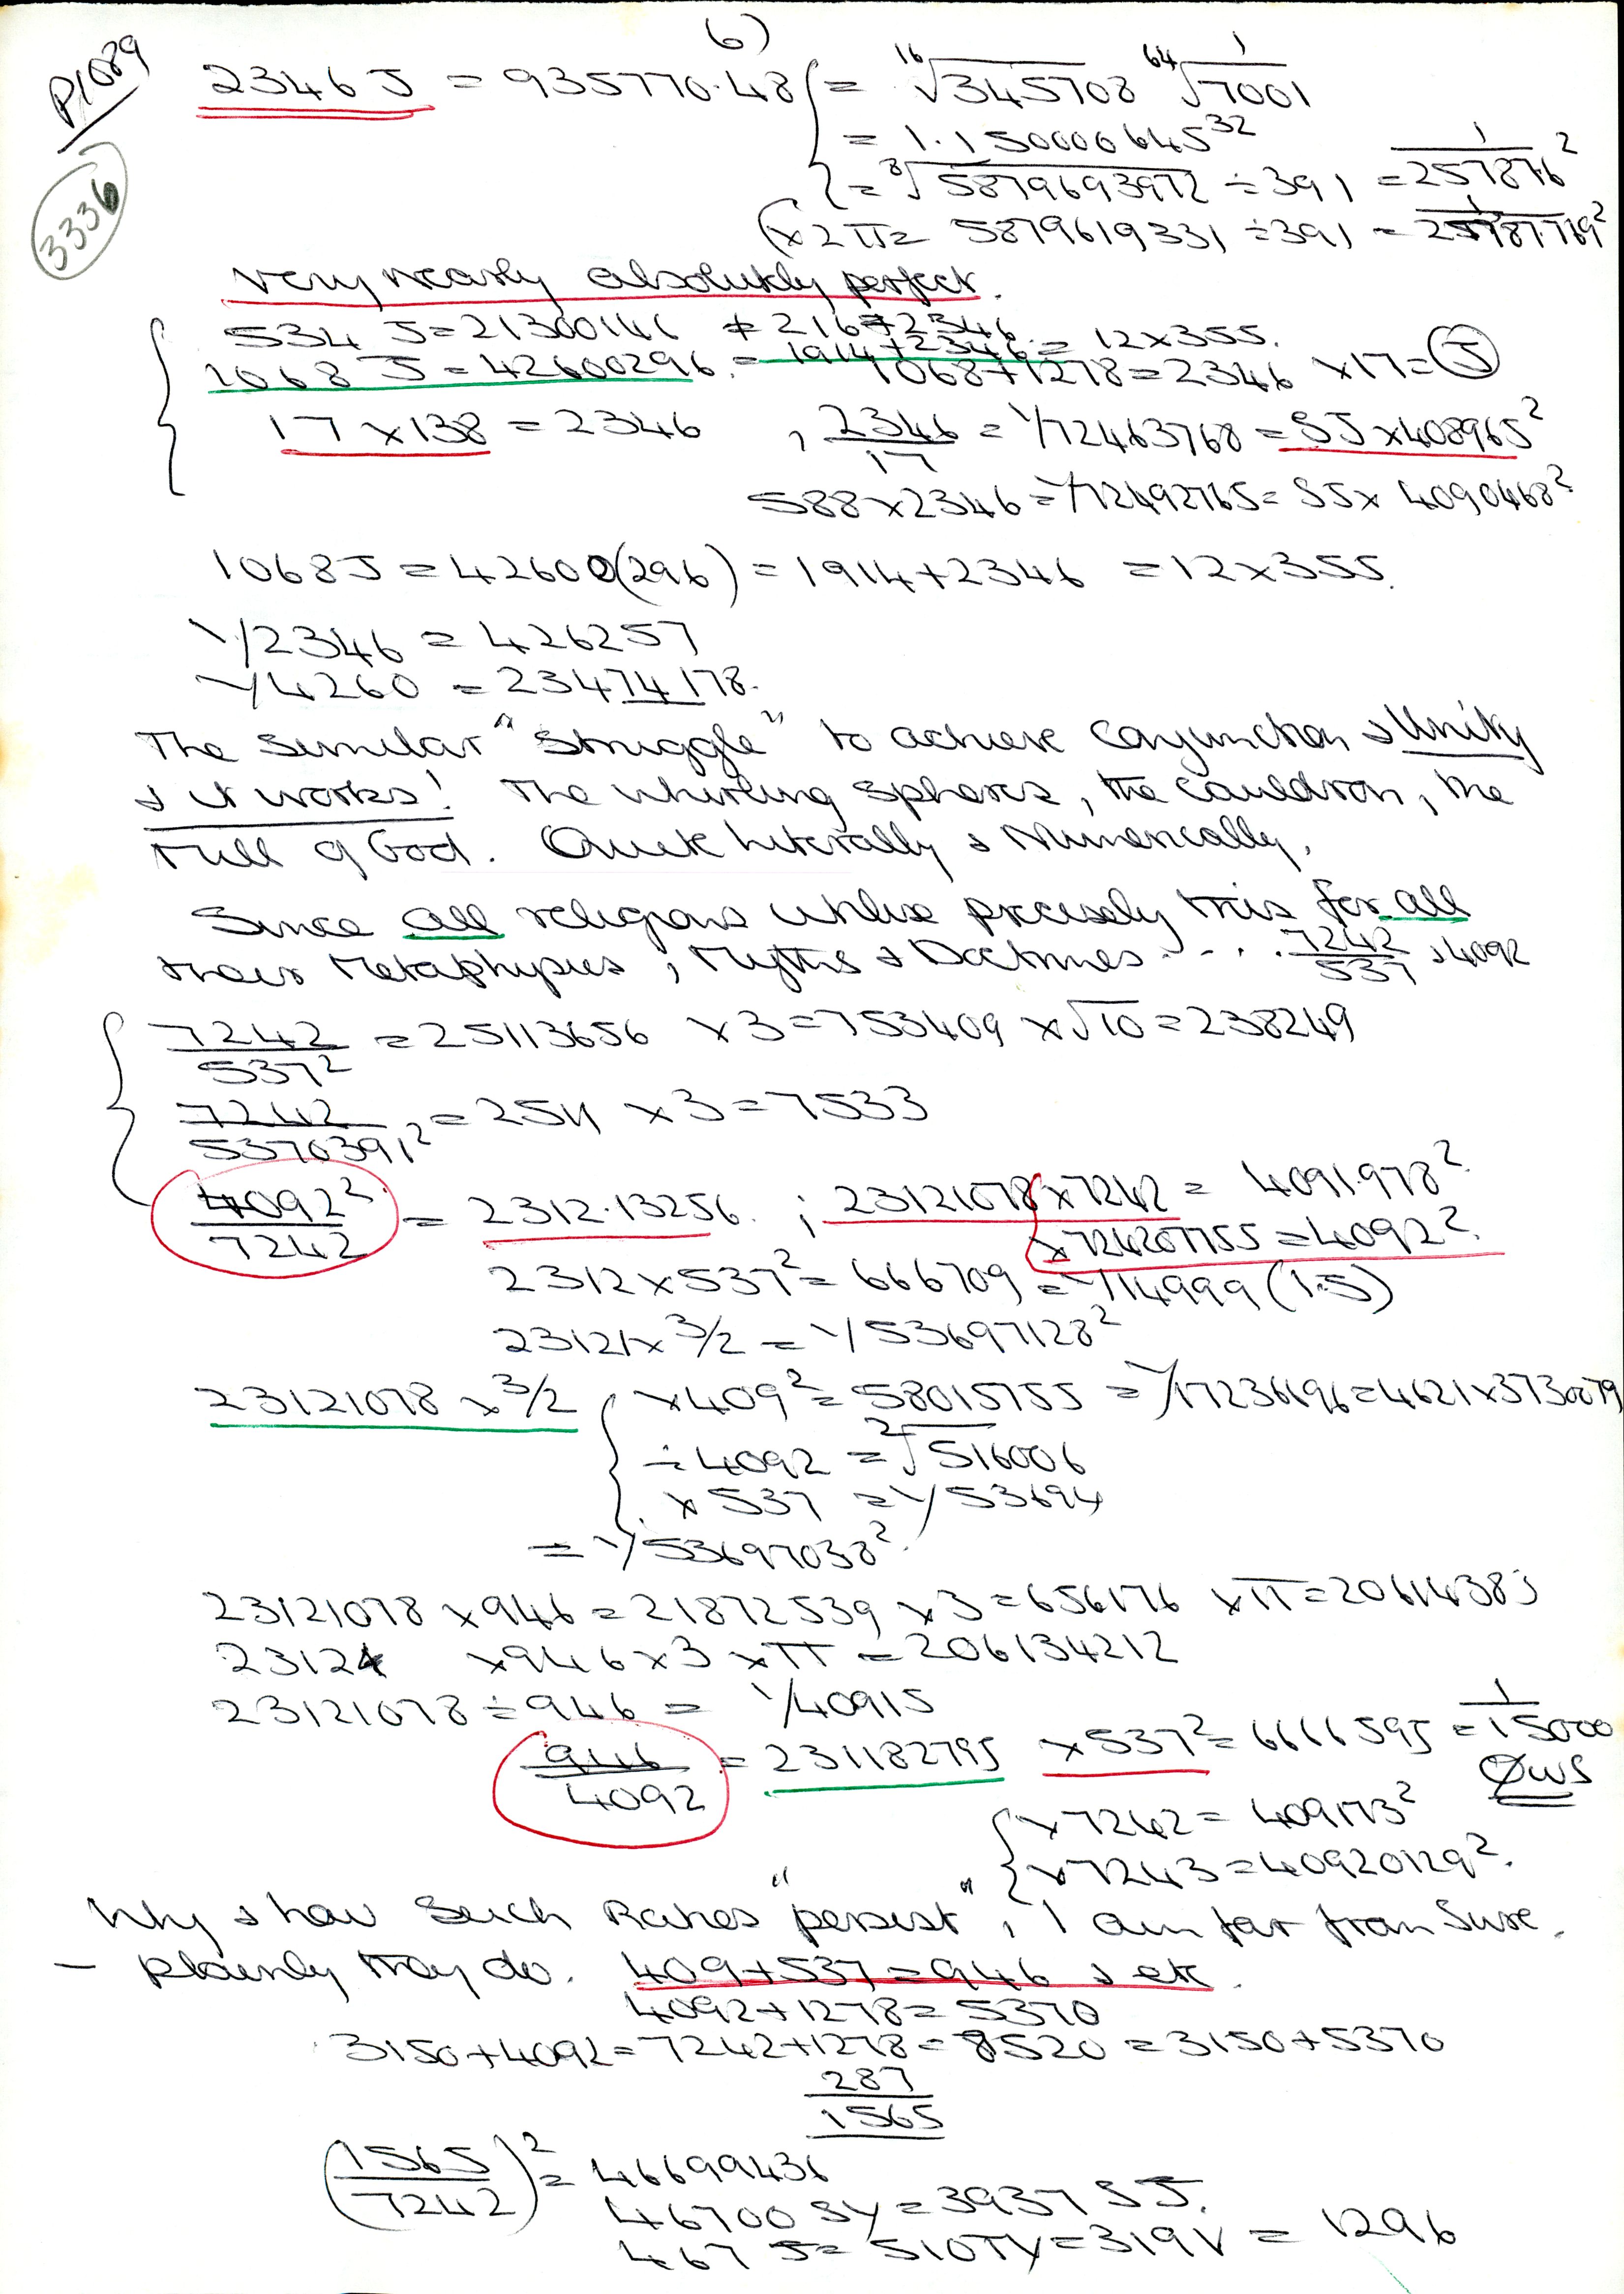 6)
P1089
3336
2346 J = 935770.48 { = ¹⁶√345708 ⁶⁴√1/7001
= 1.150000645³²
= ⁸√5879693972 ÷ 391 = 1/257876²
(x 2π = 5879619331 ÷ 391 = 1/25787.769²
very nearly absolutely perfect.
534 J = 21300146 ≠ 216 + 2346
1068 J = 42600296. = 1914 + 2346 = 12 x 355.
1068 + 1278 = 2346 x 17 = J
17 x 138 = 2346 , 2346/17 = 1/72463768 = SJ x 408965²
588 x 2346 = 1/72492765 = SJ x 4090468²
1068 J = 42600(296) = 1914 + 2346 = 12 x 355.
1/2346 = 426257
1/4260 = 23474178.
The similar "struggle" to achieve conjunction & Unity
& it works! The whirling spheres, the cauldron, the
Mill of God. Quite literally & Numerically.
Since all religions utilise precisely this for all
their Metaphysics, Myths & Doctrines .... 7242/537 , 4092
7242/537² = 25113656 x 3 = 753409 x √10 = 238249
7242/5370391² = 2511 x 3 = 7533
4092²/7242 = 2312.13256. ; 23121078 x 7242 = 4091.978²
x 724207755 = 4092².
2312 x 537² = 666709 = 1/14999 (1.5)
23121 x 3/2 = 1/53697128²
23121078 x 3/2 { x 409² = 58015755 = 1/1723696 = 4621 x 3730079
÷ 4092 = ²√516006
x 537 = 1/53694
= 1/53697038².
23121078 x 946 = 21872539 x 3 = 656176 x π = 20614383
23121 x 946 x 3 x π = 206134212
23121078 ÷ 946 = 1/40915
946/4092 = 231182795 x 537² = 6666595 = 1/15000
ØWS
{ x 7242 = 409173²
x 7243 = 40920129².
Why & how such Ratios "persist", I am far from sure.
– Plainly they do. 409 + 537 = 946 & etc.
4092 + 1278 = 5370
3150 + 4092 = 7242 + 1278 = 8520 = 3150 + 5370
287/1565
(1565/7242)² = 46699436
46700 SY = 3937 SJ.
467 J = 510TY = 319V = 1296